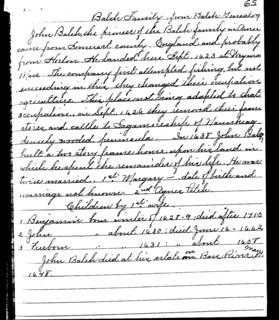 65
Balch Family from Balch Genealogy
John Balch the pioneer of the Balch family in America
came from Somerset county, England, and probably
from Horton. He landed here Sept. 1623 at Weymouth
The company first attempted fishing but not
succeeding in this they changed their occupation
agriculture. This place not being adapted to that
occupation, in Sept. 1626 they removed their
stores and cattle to of Naumkeag
densely wooded peninsula. In 1638 John Balch
built a two story frame house upon his land in
which he spent the remainder of his life. He was
twice married. 1st Margary - date of birth and
marriage not known. 2nd Agnes
Children by 1st wife.
1 Benjamin born winter of 1628-9; died after 1715
2 John " about 1630; died June 16-1662
3 Freeborn " 1631; " about 1658
John Balch died at his estate on Bass River, May
1648.